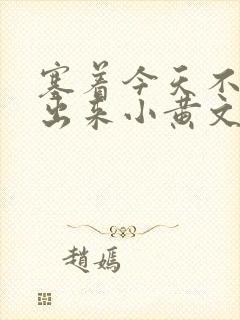 塞着今天不
出来小黄文
趙嫣